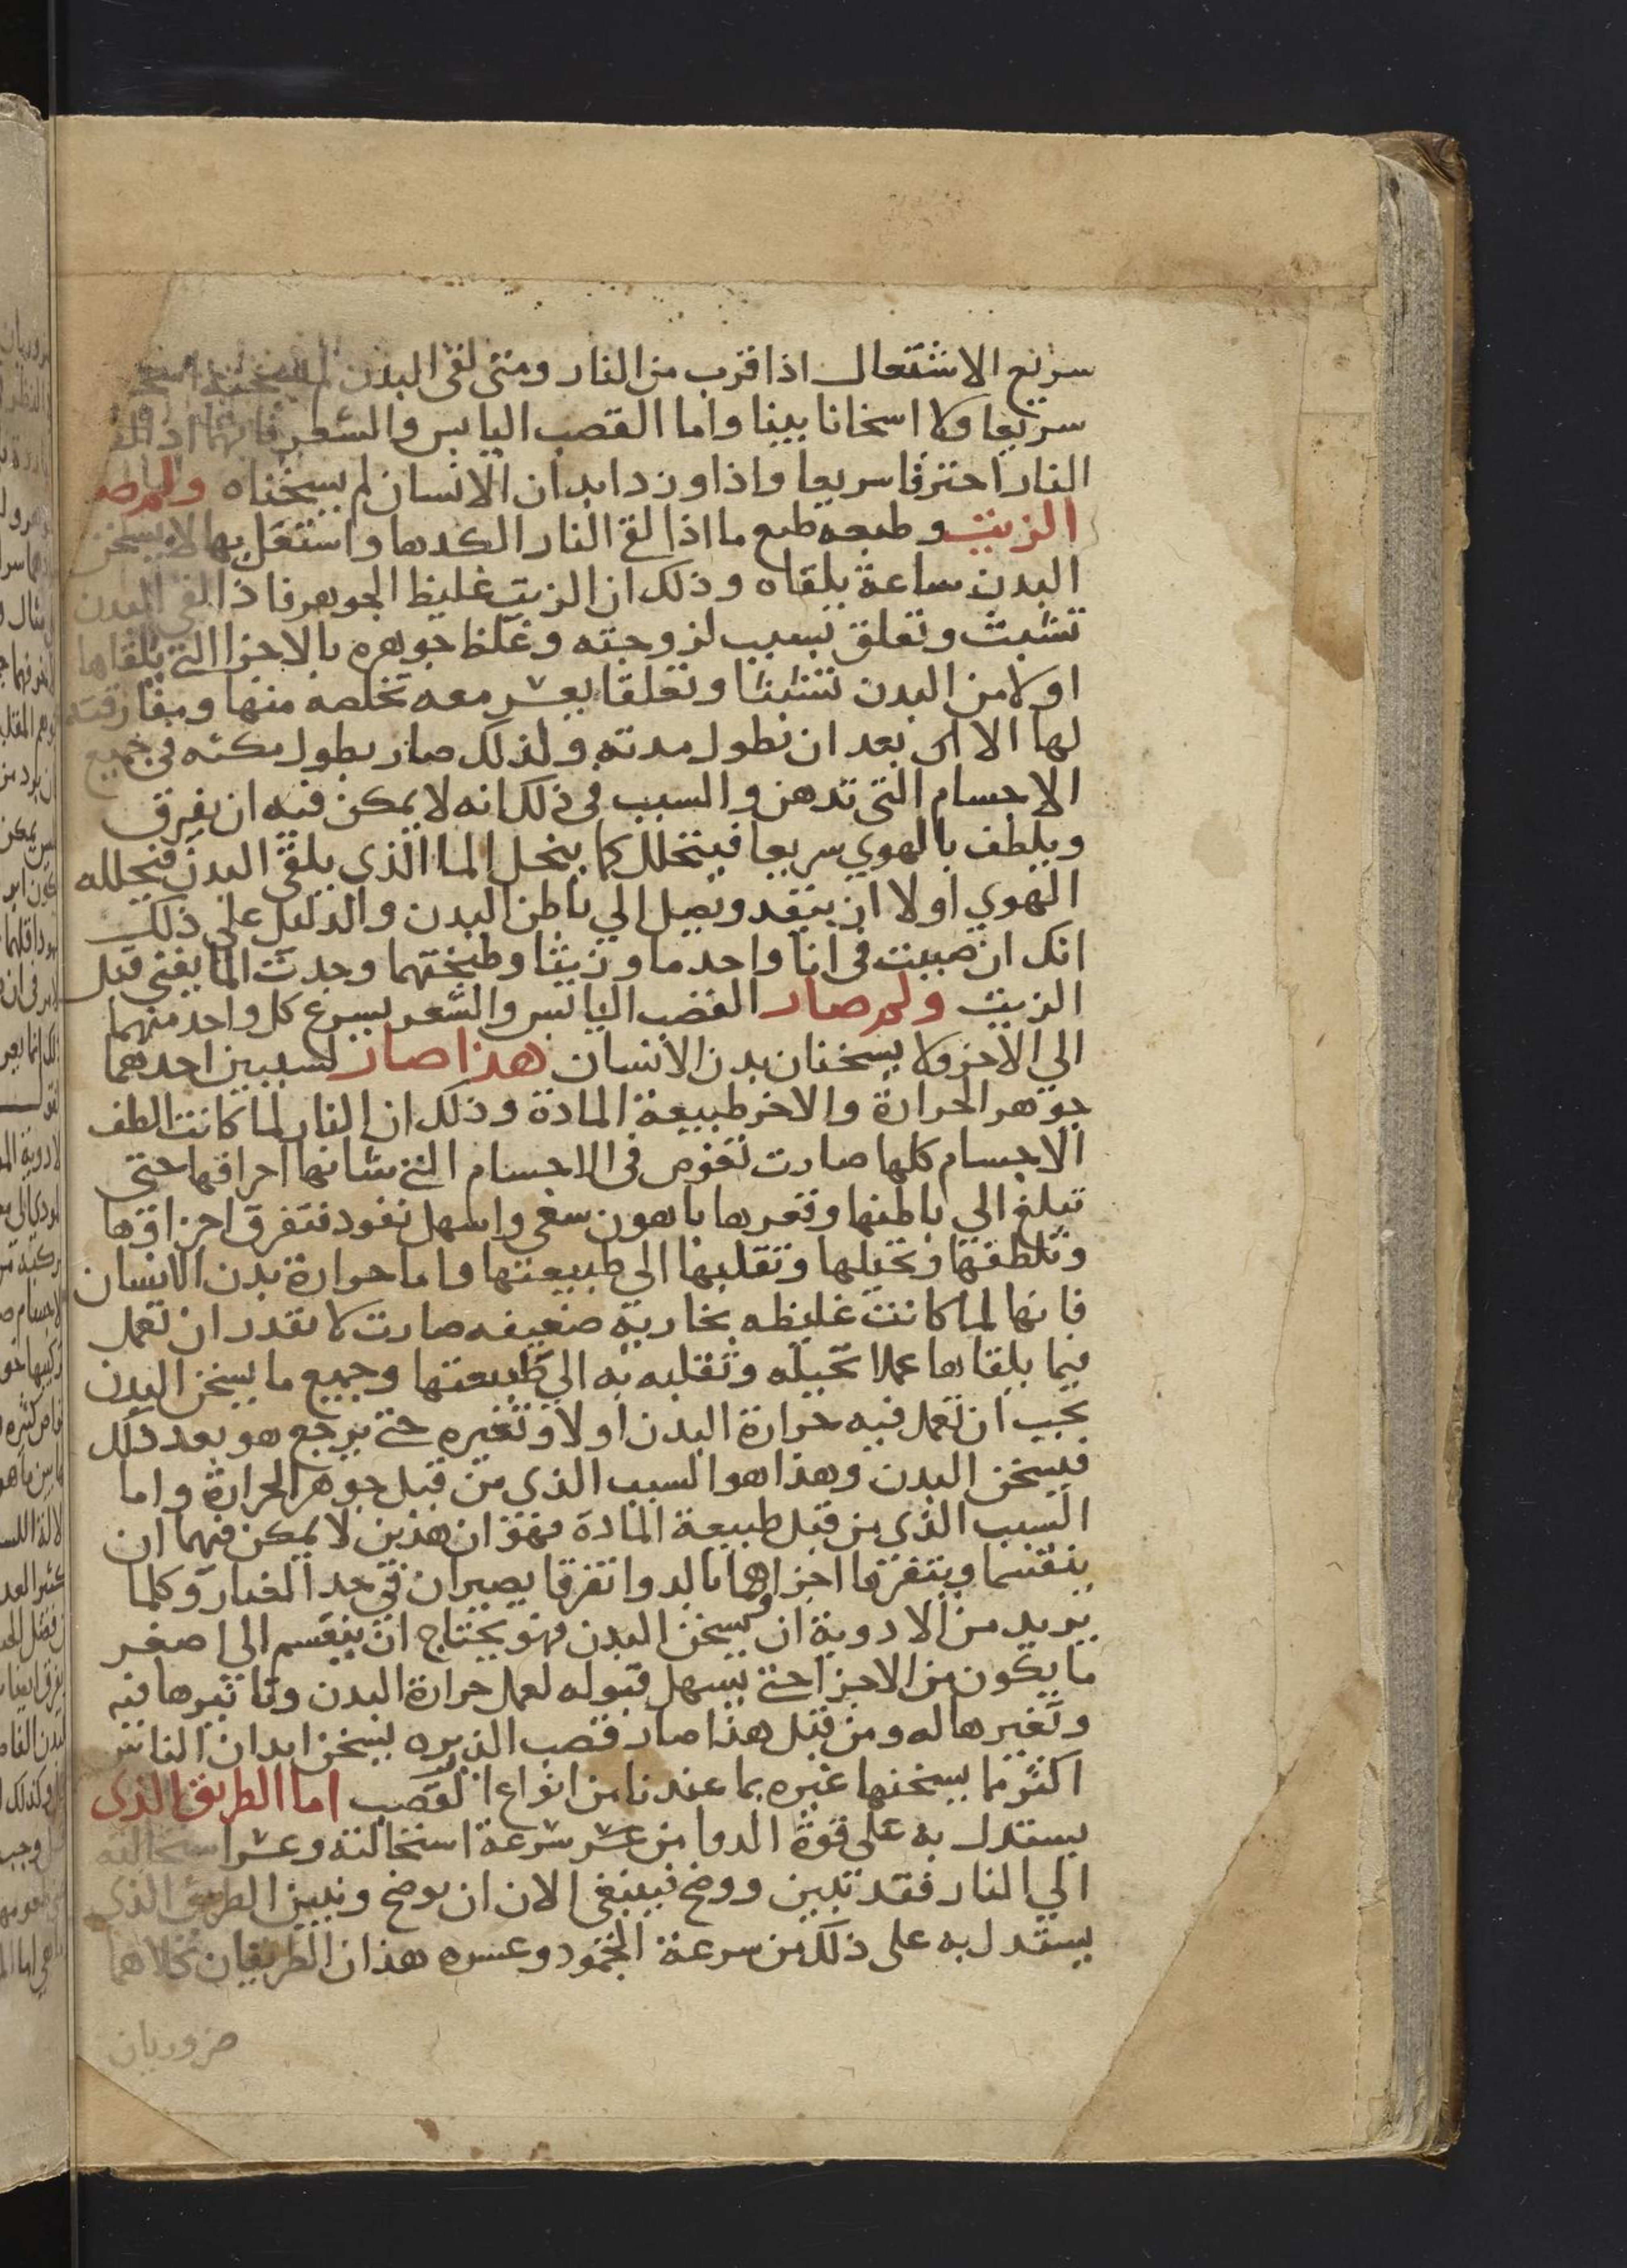 سريع الاشتعال اذا قرب من النار ومتى لقى البدن لم يسخنه اسخا
سريعا ولا اسخانا بينا واما القصب اليابس والشعر فانهما اذا لقيا
النار احترقا سريعا واذا وردا بدان الانسان لم يسخناه ولم صار
الزيت وطبعه طبع ما اذا لقى النار الكدها واشتعل بها لا يسخن
البدن ساعة يلقاه وذلك ان الزيت غليظ الجوهر فاذا لقى البدن
تشبث وتعلق بسبب لزوجته وغلظ جوهره بالاجزا التي يلقاها
اولا من البدن تشبثا وتعلقا يعسر معه تخلصه منها ومفارقته
لها الا بعد ان تطول مدته ولذلك صار يطول مكثه في جميع
الاجسام التي تدهن والسبب في ذلك انه لا يمكن فيه ان يفرق
ويلطف بالهوي سريعا فيتحلل كما ينحل الما الذي يلقى البدن فيحلله
الهوي اولا ان ينفد ويصل الي باطن البدن والدليل على ذلك
انك ان صببت في انا واحد ما وزيتا وطبختهما وجدت الما يفنى قبل
الزيت ولم صار القصب اليابس والشعر يسرع كل واحد منهما
الي الاحترا ولا يسخنان بدن الانسان هذا صار لسببين احدهما
جوهر الحرارة والاخر طبيعة المادة وذلك ان النار لما كانت الطف
الاجسام كلها صارت تغوص في الاجسام التي شانها احراقها حتى
تبلغ الي باطنها وقعرها باهون سعي واسهل نفود فتفرق اجزاوها
وتلطفها وتحيلها وتقلبها الي طبيعتها واما حرارة بدن الانسان
فانها لما كانت غليظه بخارية ضعيفه صارت لا تقدر ان تعمل
فيما يلقاها عملا تحيله وتقلبه به الي طبيعتها وجميع ما يسخن البدن
يجب ان تعمل فيه حرارة البدن اولا وتغيره حتى يرجع هو بعد ذلك
فيسخن البدن وهذا هو السبب الذي من قبل جوهر الحرارة واما
السبب الذي من قبل طبيعة المادة فهو ان هذين لا يمكن فيهما ان
ينقسما ويتفرقا اجزاهما بالدوا تفرقا يصيران في حد الغبار وكلما
يريد من الادوية ان يسخن البدن فهو يحتاج ان ينقسم الى اصغر
ما يكون من الاجزا حتى يسهل قبوله لعمل حرارة البدن وتاثيرها فيه
وتغيرها له ومن قبل هذا صار قصب الذريره يسخن ابدان الناس
اكثر مما يسخنها غيره بما عندنا من انواع القصب اما الطريق الذي
يستدل به على قوة الدوا من عسر سرعة استحالته وعسر استحالته
الي النار فقد تبين ووضح فينبغي الان ان نوضح ونبين الطريق الذي
يستدل به على ذلك من سرعة الجمود وعسره هذان الطريقان كلاهما
ضروريان